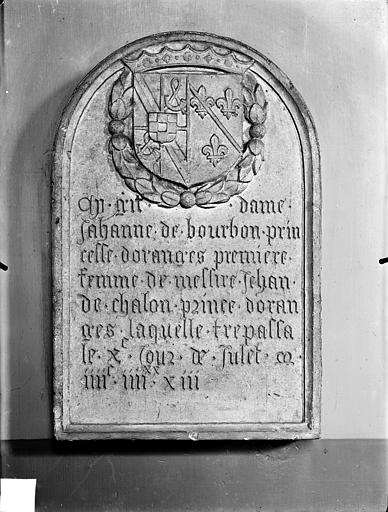 Cy · git · dame ·
Jahanne · de · bourbon · prin
cesse · doranges · premiere ·
femme · de · messire · Jehan ·
de · chalon · prince · doran
ges · laquelle · trepassa
le · xᶜ · Jour · de · Julet · m ·
iiiiᶜ · iiiiˣˣ · xiii